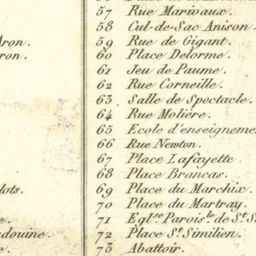 57 Rue Marivaux.
58 Cul-de-Sac Anison.
59 Rue de Gigant.
60 Place Delorme.
61 Jeu de Paume.
62 Rue Corneille.
63 Salle de Spectacle.
64 Rue Molière.
65 Ecole d'enseigneme
66 Rue Newton.
67 Place Lafayette.
68 Place Brancas.
69 Place du Marchix.
70 Place du Martray.
71 Egl.se Parois.le de S.t S
72 Place S.t Similien.
73 Abattoir.